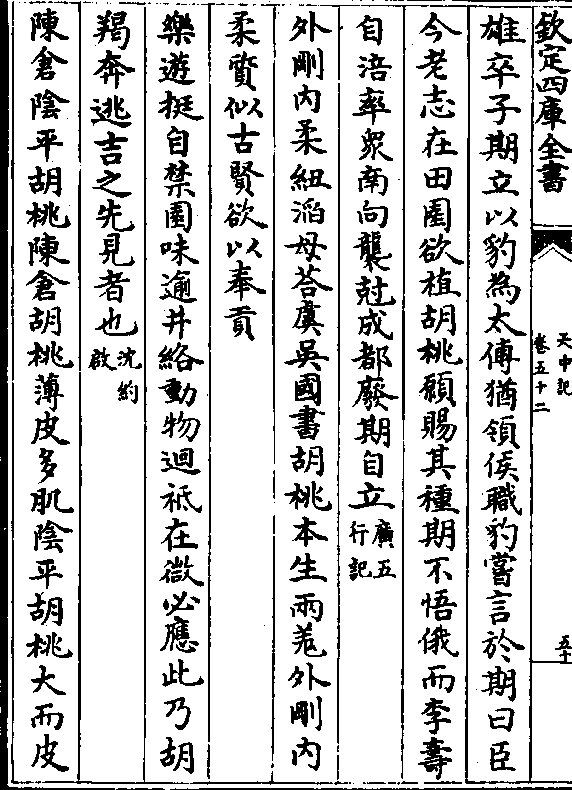 欽定四庫全書
天中記
卷五十二
五十
雄卒子期立以豹為太傅猶領侯職豹嘗言於期曰臣
今老志在田園欲植胡桃願賜其種期不悟俄而李壽
自涪率衆南向襲尅成都廢期自立廣五行記
外剛內柔紐滔母荅虞吳國書胡桃本生西羌外剛內
柔質似古賢欲以奉貢
樂遊挺自禁園味逾井絡動物迴祗在微必應此乃胡
羯奔逃吉之先見者也沈約啟
陳倉陰平胡桃陳倉胡桃薄皮多肌陰平胡桃大而皮